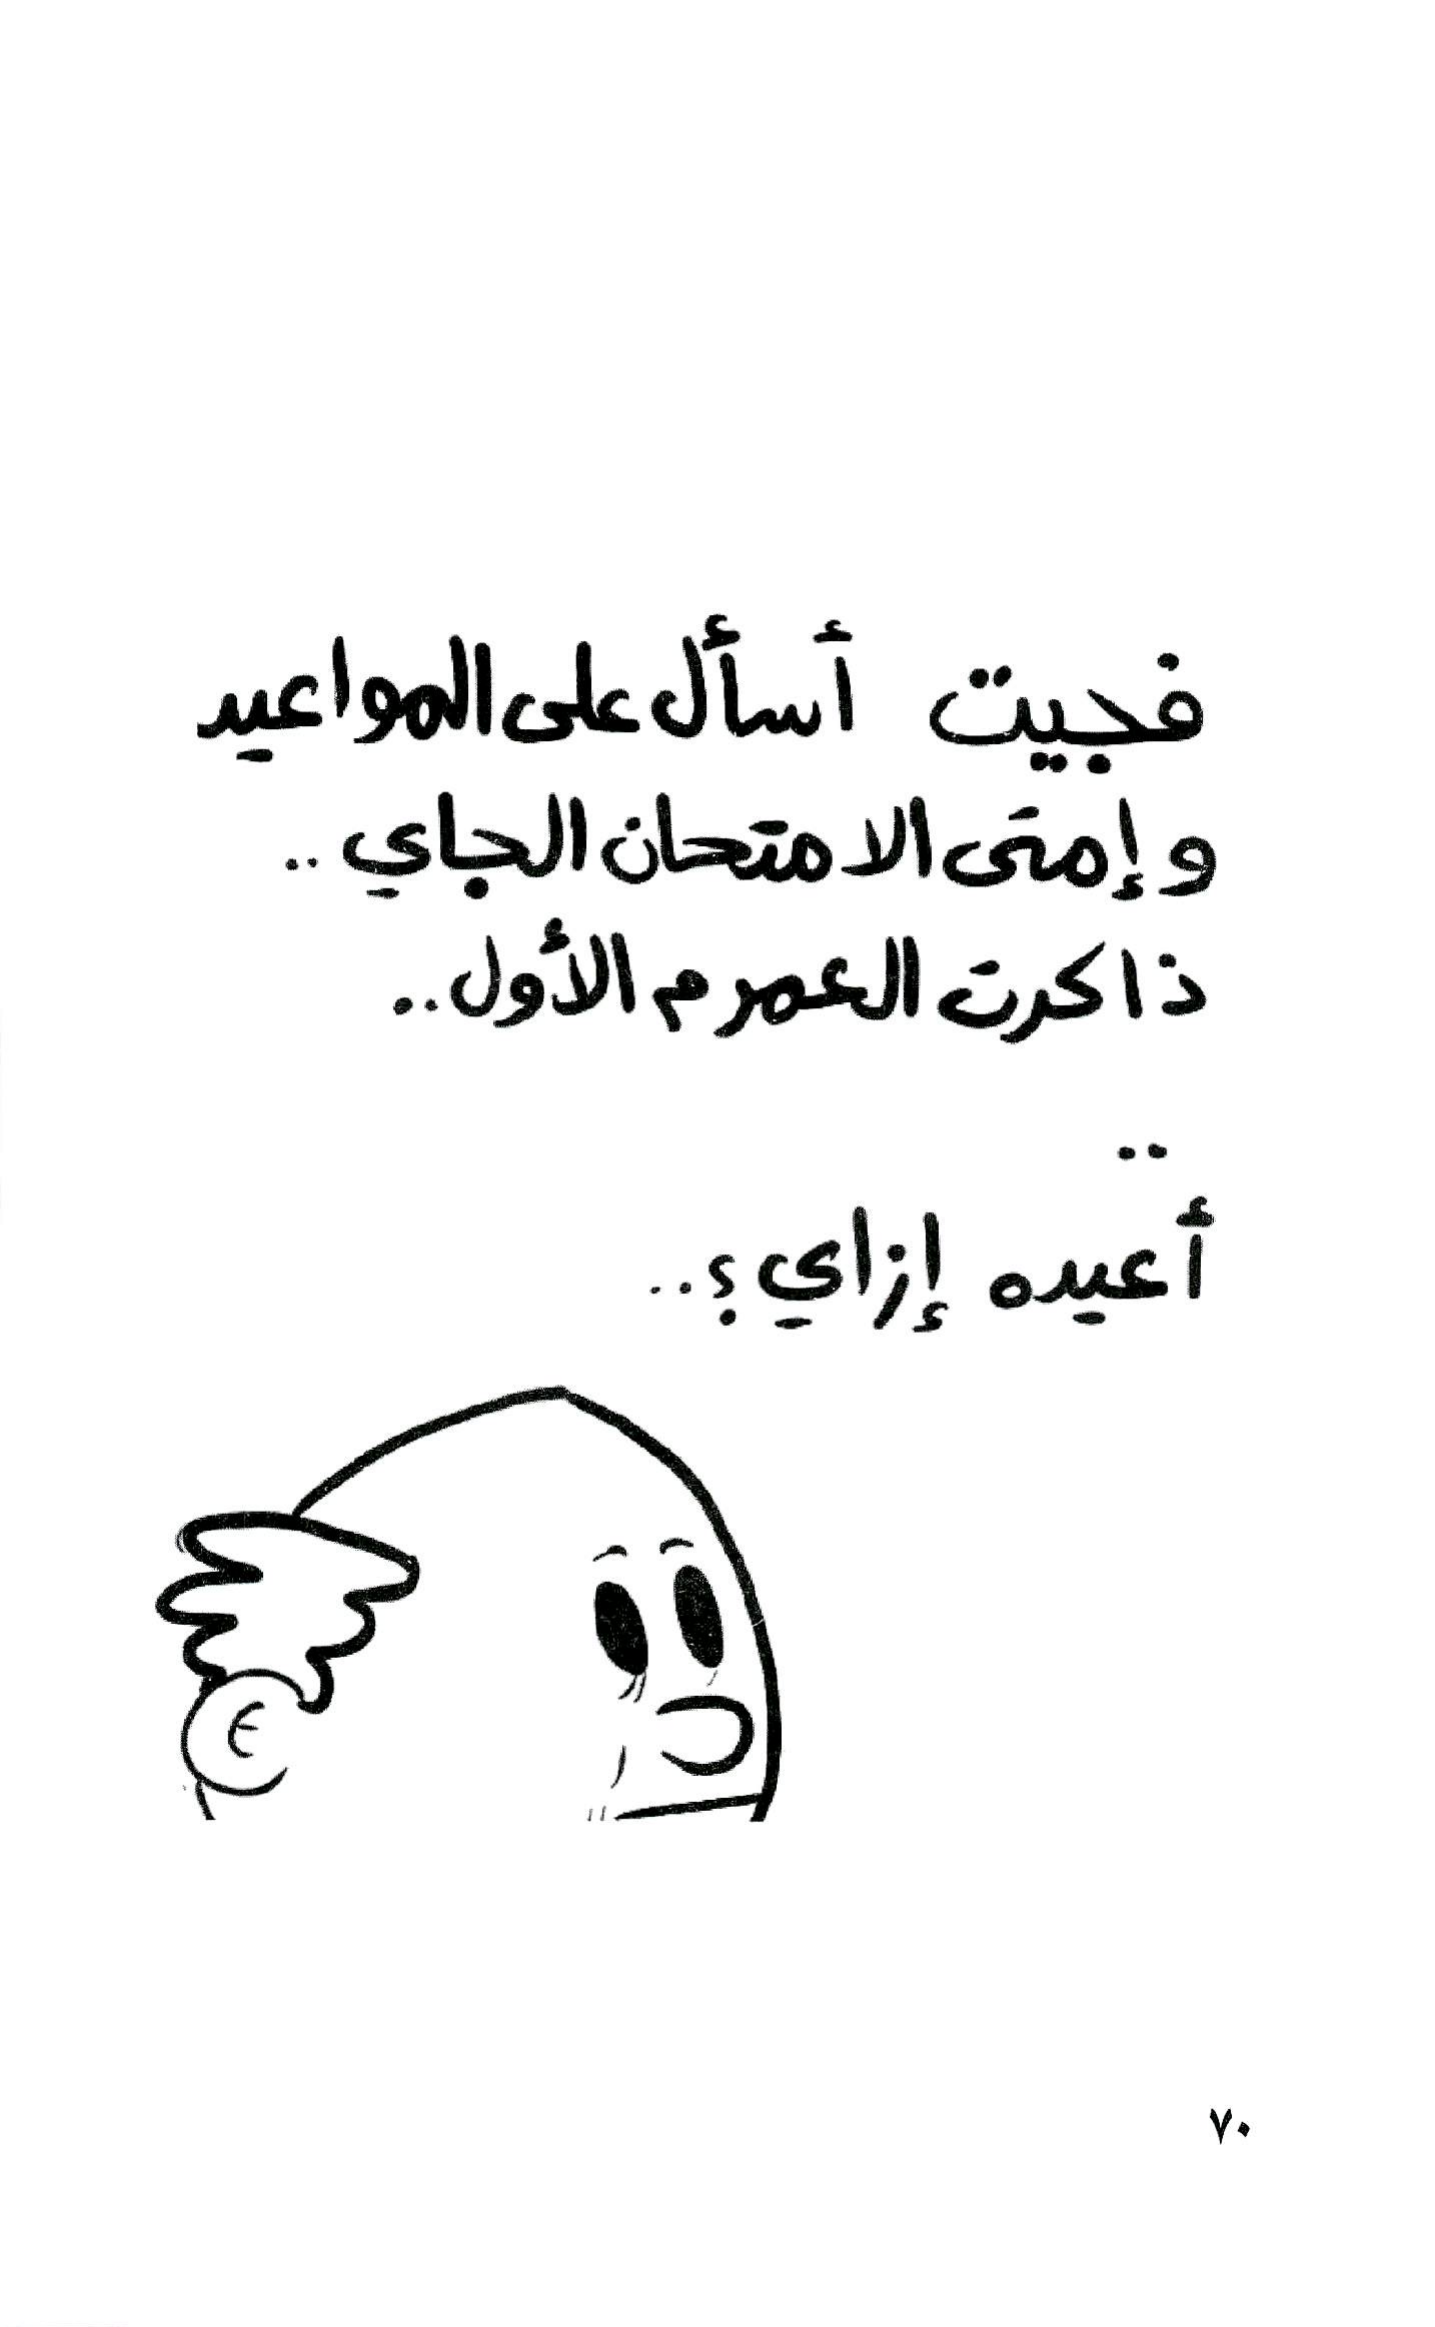 فجيت أسأل على المواعيد
وإمتى الامتحان الجاي ..
ذاكرت العمر م الأول ..
..
أعيده إزاي ؟ ..
٧٠